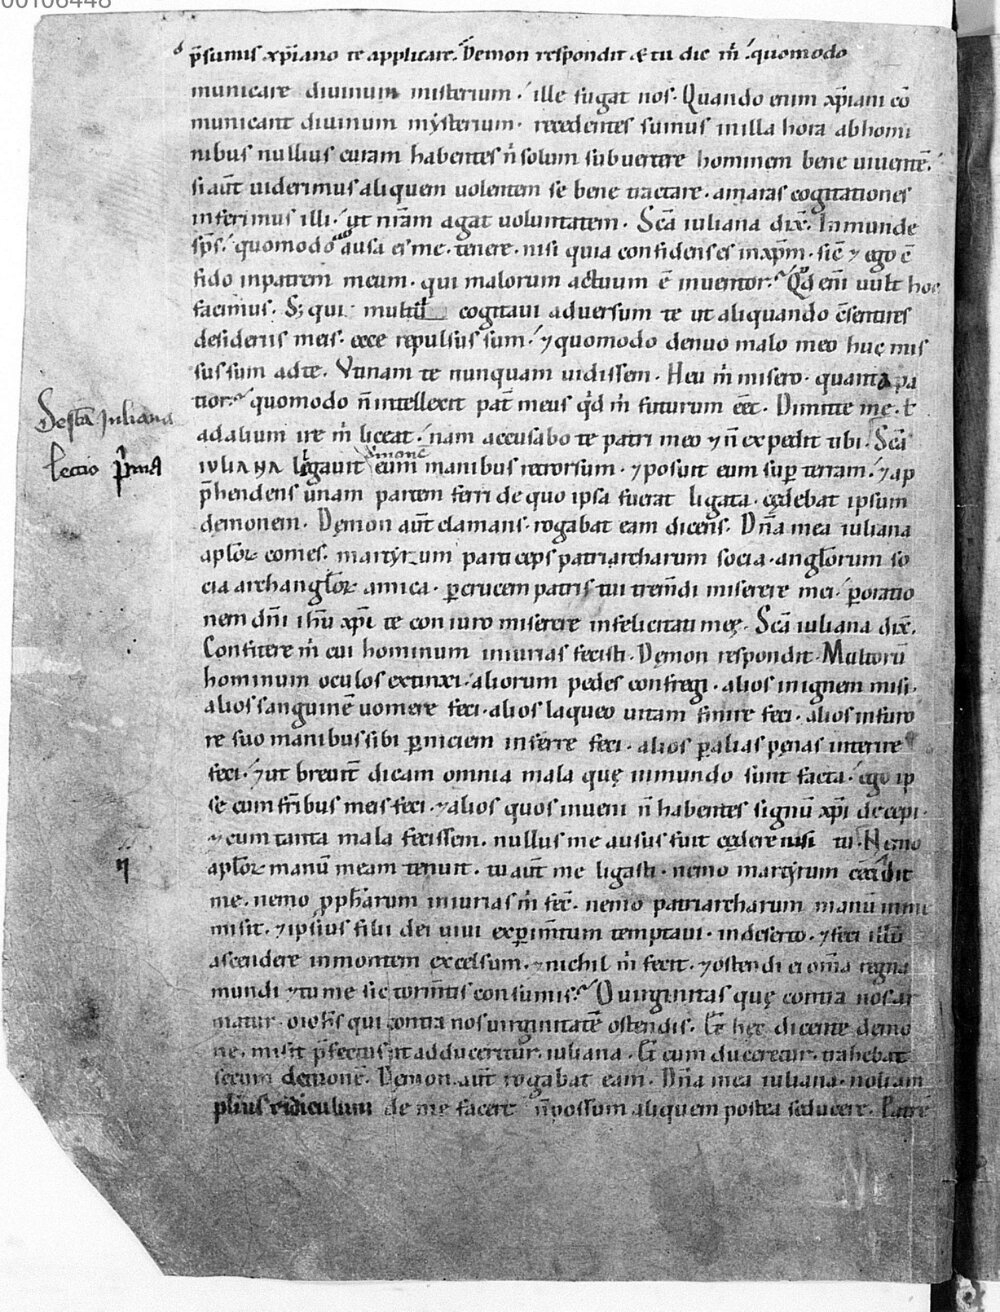 00106448
p̄sumis xp̄iano te applicare. Demon respondit. & tu dic m̄. quomodo
municare diuinum misterium. ille fugat nos. Quando enim xp̄iani cō
municant diuinum mysterium. recedentes sumus in illa hora ab homi
nibus nullius curam habentes n̄ solum subuertere hominem bene uiuentē.
si aūt uiderimus aliquem uolentem se bene tractare. amaras cogitationes
inferimus illi. ut nr̄am agat uoluntatem. Scā iuliana dix̄. Inmunde
sp̄s. quomodo ausa es me tenere. nisi quia confidens es in xp̄m. sic̄ ⁊ ego cō
fido in patrem meum. qui malorum actuum ē inuentor. Qd̄ eni uult hoc
facimus. S; qui multū cogitaui aduersum te ut aliquando c̄sentires
desideriis meis. ecce repulsus sum. ⁊ quomodo denuo malo meo huc mis
sus sum ad te. Vtinam te nunquam uidissem. Heu m̄ misero. quanta pa
tior. quomodo n̄ intellexit pat̄ meus qd̄ m̄ futurum eēt. Dimitte me. &
ad alium ire m̄ liceat. nam accusabo te patri meo ⁊ n̄ expedit tibi. Scā
Sesta Juliana
IVLIANA ligauit eum manibus retrorsum. ⁊ posuit eum sup̄ terram. ⁊ ap
lectio p̄ma
p̄hendens unam partem ferri de quo ipsa fuerat ligata. cedebat ipsum
demonem. Demon aūt clamans. rogabat eam dicens. Dn̄a mea iuliana
aplōr comes. martyrum particeps patriarcharum socia. angl̄orum so
cia archangl̄or amica. p̄ crucem patris tui trem̄di miserere mei. p̄ oratio
nem dn̄i ih̄u xp̄i te coniuro miserere infelicitati meę. Scā iuliana dix̄.
Confitere m̄ cui hominum iniurias fecisti. Demon respondit. Multorū
hominum oculos extinxi. aliorum pedes confregi. alios in ignem misi.
alios sanguinē uomere feci. alios laqueo uitam finire feci. alios in furo
re suo manibus sibi p̄niciem inferre feci. alios p̄ alias pęnas interire
feci. ⁊ ut breuit̄ dicam omnia mala quę in mundo sunt facta. ego ip
se cum fr̄ibus meis feci. ⁊ alios quos inueni n̄ habentes signū xp̄i decepi.
⁊ cum tanta mala fecissem. nullus me ausus fuit cedere nisi tu. Nemo
aplōr manū meam tenuit. tu aūt me ligasti. nemo martyrum cecidit
me. nemo p̄ph̄arum iniurias m̄ fec̄. nemo patriarcharum manū in me
misit. ⁊ ipsius filii dei uiui exp̄im̄tum temptaui. in deserto. ⁊ feci illū
ascendere in montem excelsum. ⁊ nichil m̄ fecit. ⁊ ostendi ei om̄ia regna
mundi ⁊ tu me sic torm̄tis consumis. O uirginitas quę contra nos ar
matur. o ioh̄s qui contra nos uirginitatē ostendis. Et hec dicente demo
ne. misit p̄fectus ut adduceretur iuliana. Et cum duceretur. trahebat
secum demonē. Demon aūt rogabat eam. Dn̄a mea iuliana. noli am
plius ridiculum de me facere n̄ possum aliquem postea seducere. Patrē